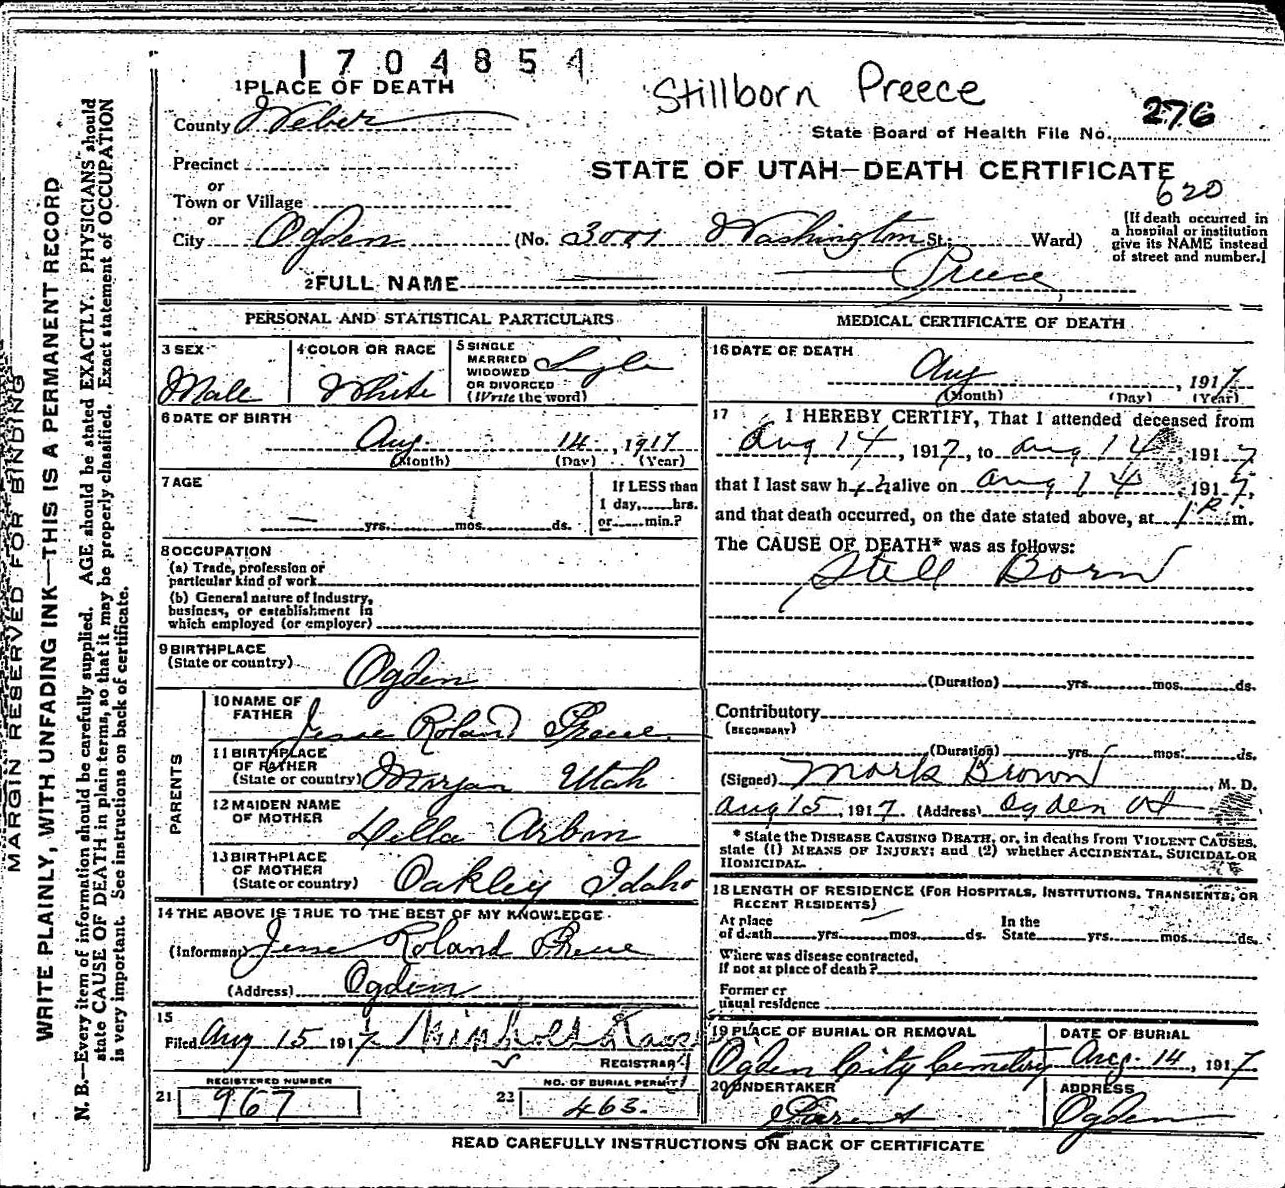 1704854
Stillborn Preece
1 PLACE OF DEATH
County Weber
276
State Board of Health File No.
Precinct
or
STATE OF UTAH—DEATH CERTIFICATE
620
Town or Village
or
City Ogden (No. 3001 Washington St; Ward)
(If death occurred in a hospital or institution give its NAME instead of street and number.]
2 FULL NAME Preece
PERSONAL AND STATISTICAL PARTICULARS
3 SEX
Male
4 COLOR OR RACE
White
5 SINGLE
MARRIED
WIDOWED
OR DIVORCED
(Write the word)
Single
6 DATE OF BIRTH
Aug. 14, 1917
(Month) (Day) (Year)
7 AGE
— yrs. mos. ds.
If LESS than
1 day, hrs.
or min.?
8 OCCUPATION
(a) Trade, profession or
particular kind of work
(b) General nature of Industry,
business, or establishment in
which employed (or employer)
9 BIRTHPLACE
(State or country) Ogden
PARENTS
10 NAME OF
FATHER Jesse Roland Preece
11 BIRTHPLACE
OF FATHER
(State or country) Morgan Utah
12 MAIDEN NAME
OF MOTHER Della
13 BIRTHPLACE
OF MOTHER
(State or country) Oakley Idaho
14 THE ABOVE IS TRUE TO THE BEST OF MY KNOWLEDGE
(Informant) Jesse Roland Preece
(Address) Ogden
15
Filed Aug 15 1917
REGISTRAR
REGISTERED NUMBER
21 967
NO. OF BURIAL PERMIT
22 463.
MEDICAL CERTIFICATE OF DEATH
16 DATE OF DEATH
Aug , 1917
(Month) (Day) (Year)
17 I HEREBY CERTIFY, That I attended deceased from
Aug 14, 1917, to Aug 14, 1917,
that I last saw h alive on Aug 14, 1917,
and that death occurred, on the date stated above, at 1 P. m.
The CAUSE OF DEATH* was as follows:
Still Born
(Duration) yrs. mos. ds.
Contributory
(SECONDARY)
(Duration) yrs. mos. ds.
(Signed) Mark Brown, M. D.
Aug 15, 1917. (Address) Ogden Ut
* State the DISEASE CAUSING DEATH, or, in deaths from VIOLENT CAUSES,
state (1) MEANS OF INJURY; and (2) whether ACCIDENTAL, SUICIDAL OR
HOMICIDAL.
18 LENGTH OF RESIDENCE (FOR HOSPITALS, INSTITUTIONS, TRANSIENTS, OR
RECENT RESIDENTS)
At place
of death yrs. mos. ds.
In the
State yrs. mos. ds.
Where was disease contracted,
If not at place of death?
Former or
usual residence
19 PLACE OF BURIAL OR REMOVAL
Ogden City Cemetery
DATE OF BURIAL
Aug. 14, 1917.
20 UNDERTAKER
Parent
ADDRESS
Ogden
READ CAREFULLY INSTRUCTIONS ON BACK OF CERTIFICATE
MARGIN RESERVED FOR BINDING
WRITE PLAINLY, WITH UNFADING INK—THIS IS A PERMANENT RECORD
N. B.—Every item of information should be carefully supplied. AGE should be stated EXACTLY. PHYSICIANS should
state CAUSE OF DEATH in plain terms, so that it may be properly classified. Exact statement of OCCUPATION
is very important. See instructions on back of certificate.